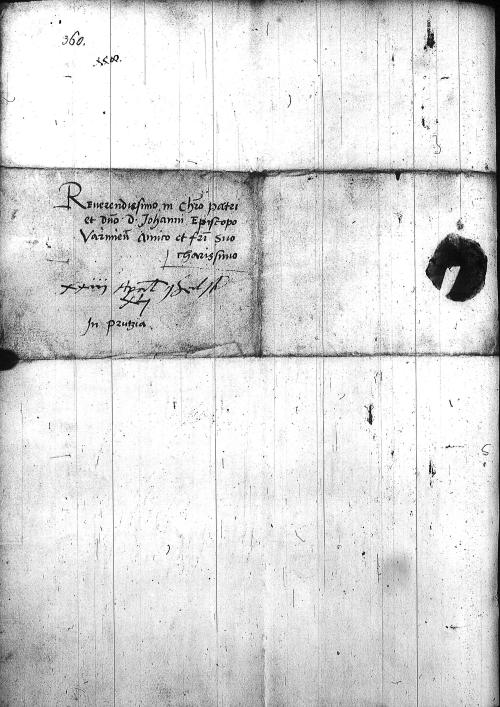 360.
Reverendissimo in Chro patri
et dno d. Johanni Episcopo
Varmien Amico et fri suo
charissimo
xxiiii
In Prutzia.